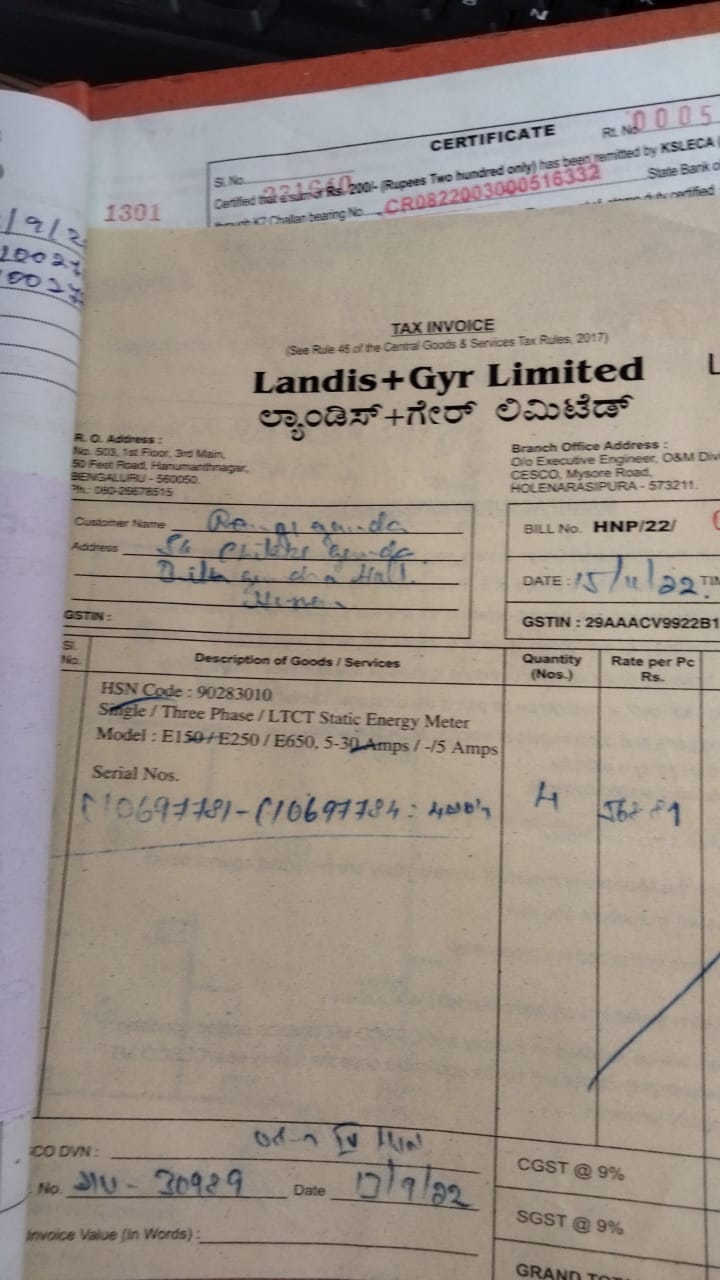 1301
CERTIFICATE
Rt. No. 0005
Sl. No. 231640
Certified that a sum of Rs. 200/- (Rupees Two hundred only) has been remitted by KSLECA (
through K2 Challan bearing No. CR0822003000516332 State Bank o
TAX INVOICE
(See Rule 46 of the Central Goods & Services Tax Rules, 2017)
Landis+Gyr Limited
ಲ್ಯಾಂಡಿಸ್+ಗೇರ್ ಲಿಮಿಟೆಡ್
R. O. Address :
No. 503, 1st Floor, 3rd Main,
50 Feet Road, Hanumanthnagar,
BENGALURU - 560050.
Ph.: 080-26678515
Branch Office Address :
O/o Executive Engineer, O&M Divi
CESCO, Mysore Road,
HOLENARASIPURA - 573211.
Customer Name
Address
GSTIN :
BILL No. HNP/22/
DATE : 15/11/22 TIM
GSTIN : 29AAACV9922B1
Sl. No.
Description of Goods / Services
Quantity (Nos.)
Rate per Pc Rs.
HSN Code : 90283010
Single / Three Phase / LTCT Static Energy Meter
Model : E150 / E250 / E650, 5-30 Amps / -/5 Amps
Serial Nos.
4
CO DVN :
No. 30989 Date 17/9/22
Invoice Value (In Words) :
CGST @ 9%
SGST @ 9%
GRAND TO